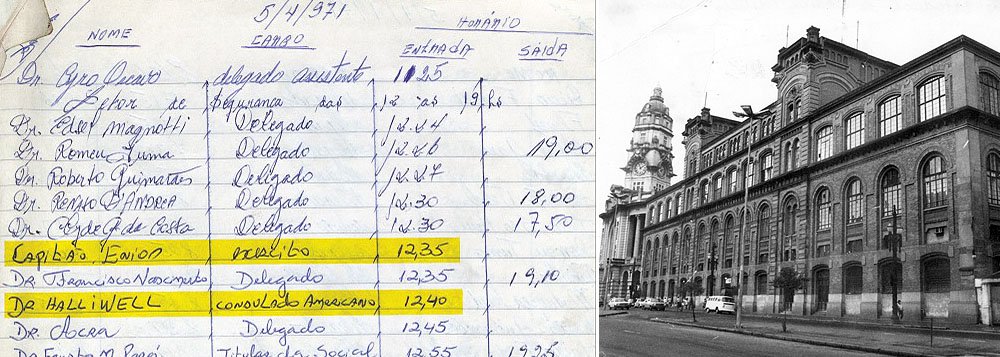 5/4/971
NOME CARGO HORÁRIO
ENTRADA SAIDA
Dr. delegado assistente 11 25
Setor de Segurança das 12 às 19 hs
Dr. Edsel Magnotti Delegado 12.24
Dr. Romeu Tuma Delegado 12.26 19,00
Dr. Roberto Guimarães Delegado 12.27
Dr. Renato D'ANDREA Delegado 12.30 18,00
Dr. da Costa Delegado 12.30 17,50
CAPITÃO ENIO 12,35
DR Francisco Nascimento Delegado 12,35 19,10
DR HALLIWELL CONSULADO AMERICANO 12,40
DR. Acra Delegado 12,45
Dr. Fausto M. Titular da Social 12,55 1925